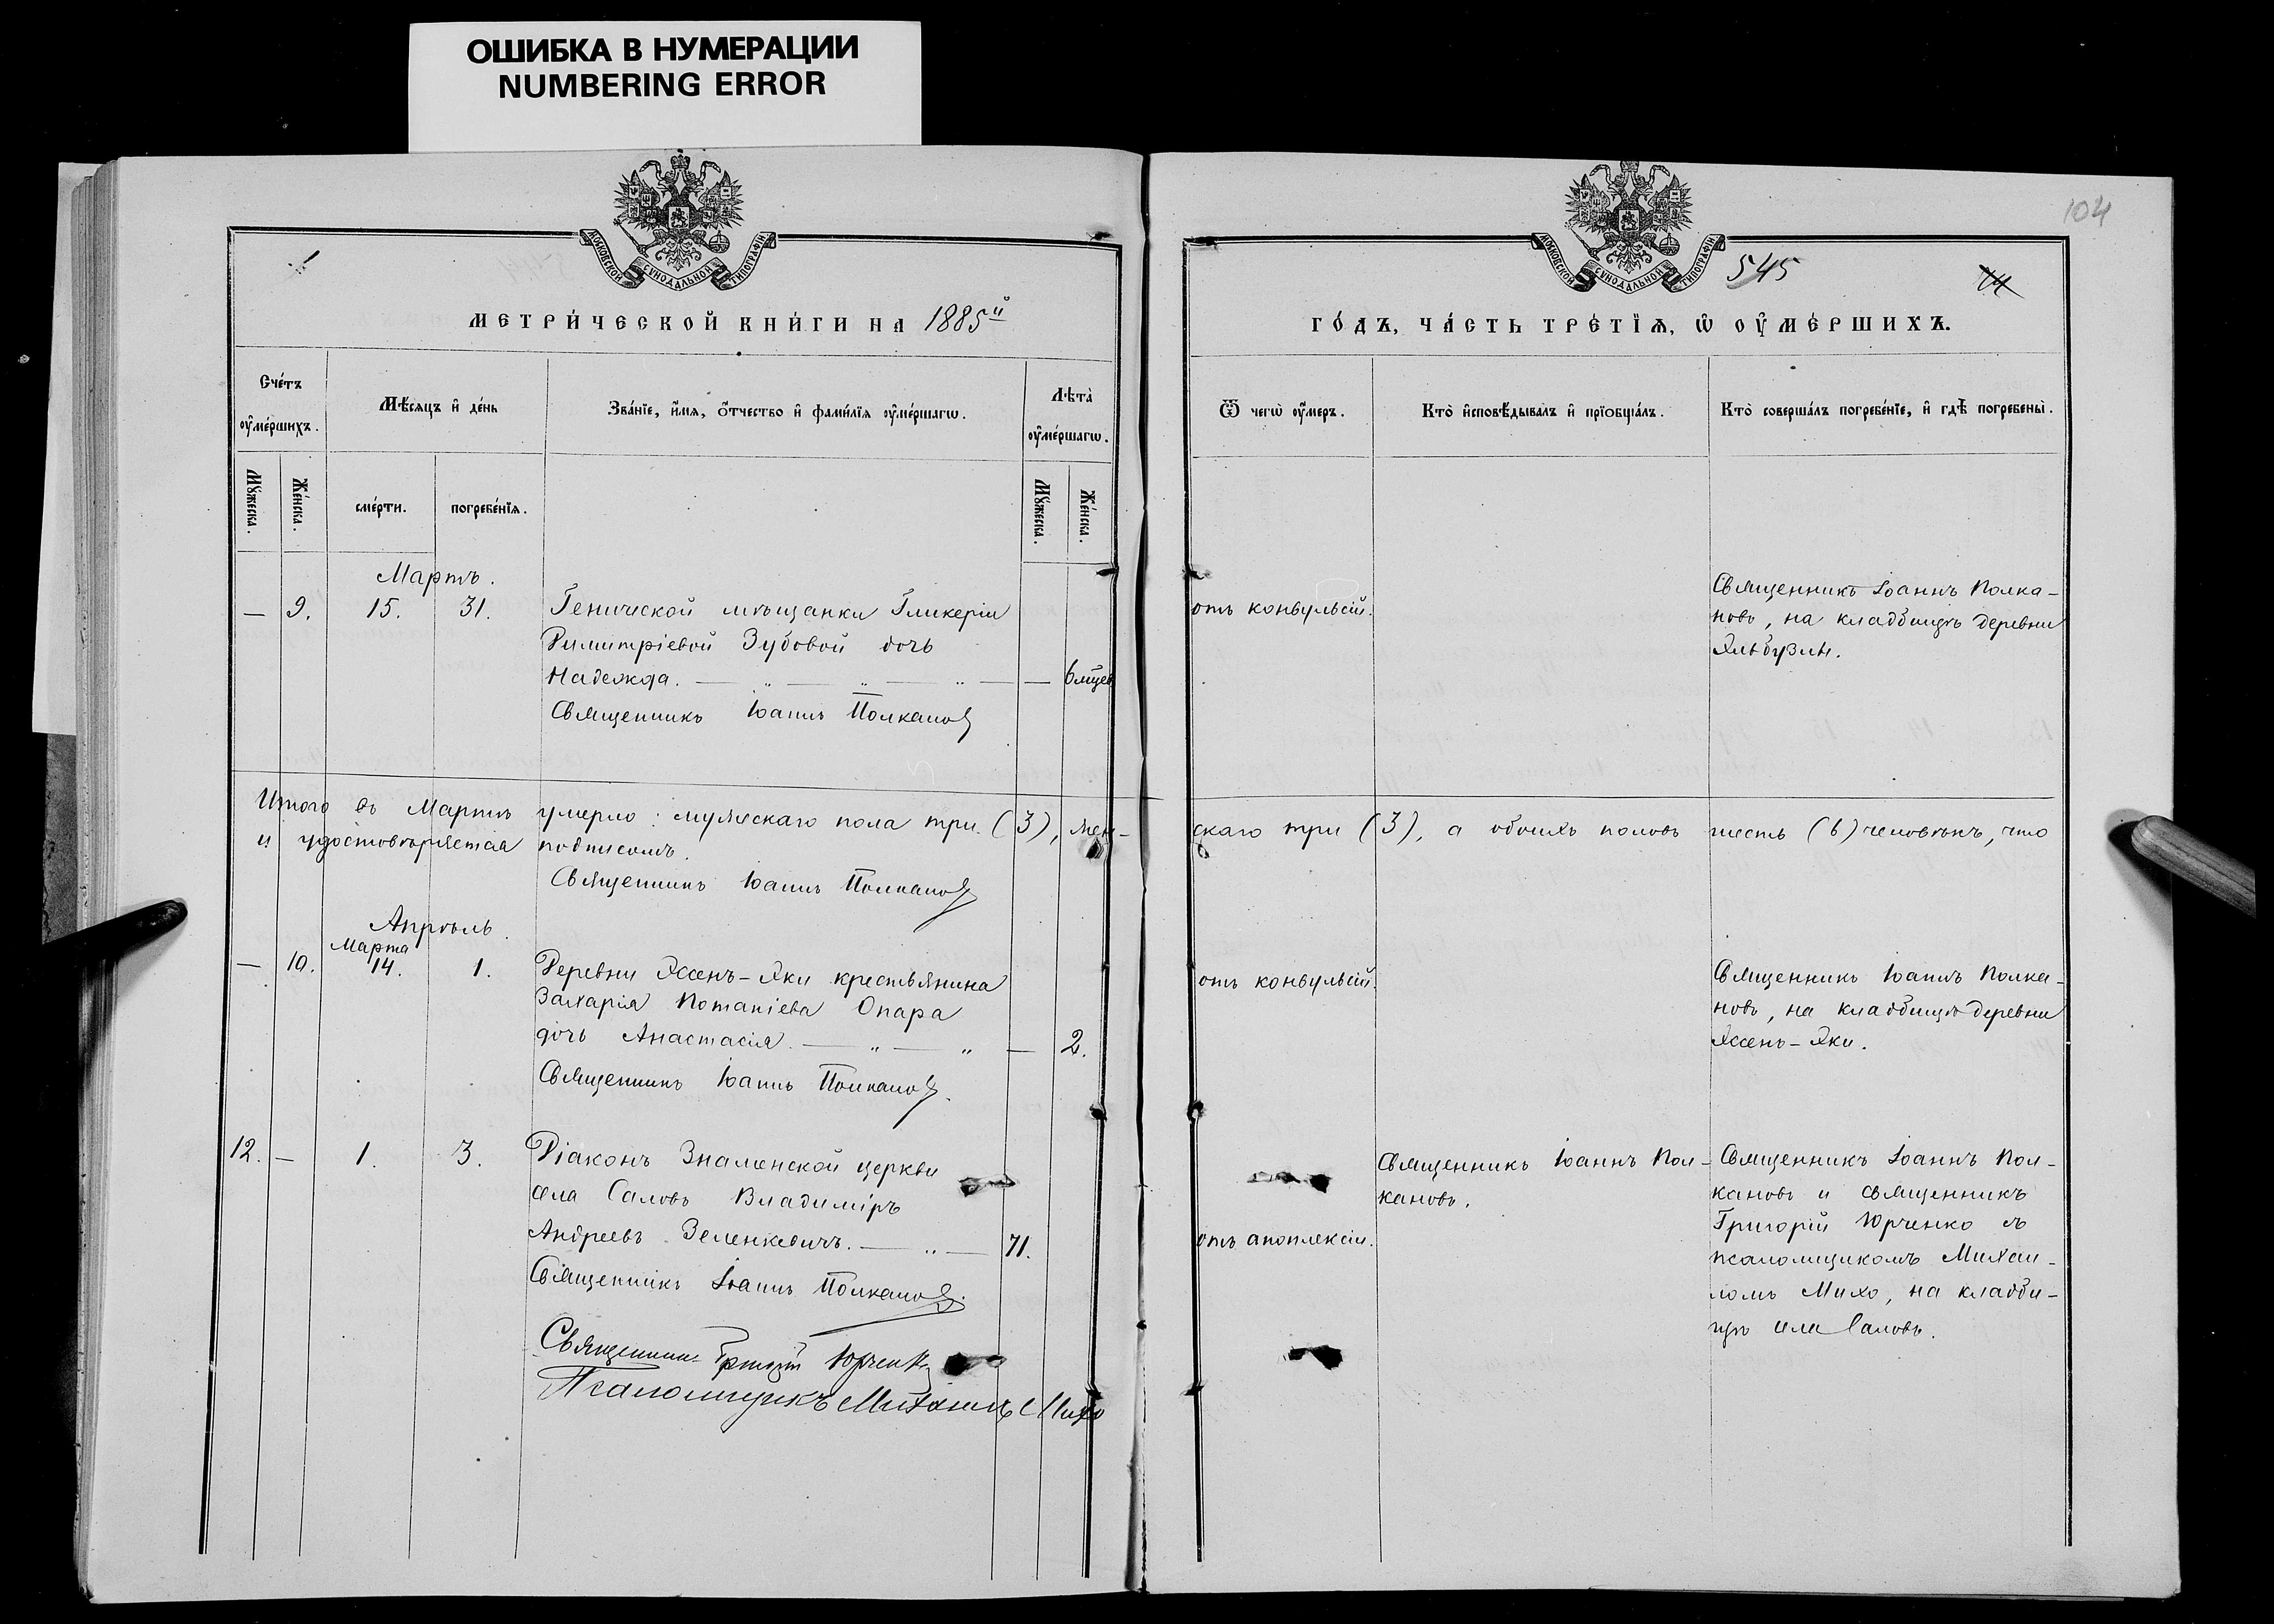 ОШИБКА В НУМЕРАЦИИ
NUMBERING ERROR
МОСКОВСКОЙ СѴНОДАЛЬНОЙ ТИПОГРАФІИ
МЕТРИ́ЧЕСКОЙ КНИ́ГИ НА 1885й
Сче́тъ ᲂу҆ме́ршихъ.
Мѣ́сяцъ и҆ де́нь
Зва́нїе, и҆́мя, ѻ҆́тчество и҆ фами́лїя ᲂу҆ме́ршагѡ.
Лѣта̀ ᲂу҆ме́ршагѡ.
Мꙋ́жеска.
Же́нска.
сме́рти.
погребе́нїя.
Мꙋ́жеска.
Же́нска.
Мартъ.
— 9. 15. 31. Генической мѣщанки Гликеріи
Димитріевой Зубовой дочь
Надежда. — „ — „ — „ — — 6 мцев
Священникъ Іоаннъ Полканов
Итого въ Мартѣ умерло: мужскаго пола три (3), жен-
и удостовѣряется подписомъ.
Священникъ Іоаннъ Полканов
Апрѣль.
Марта
— 10. 14. 1. Деревни Ясенъ-Яки крестьянина
Захарія Потапіева Опара
дочь Анастасія. — „ — „ — 2.
Священникъ Іоаннъ Полканов.
12. — 1. 3. Діаконъ Знаменской церкви
села Саловъ Владиміръ
Андреевъ Зеленкевичъ. — „ — 71.
Священникъ Іоаннъ Полканов.
Священник Григорій Юрченко
Псаломщикъ Михаилъ Михо
104
МОСКОВСКОЙ СѴНОДАЛЬНОЙ ТИПОГРАФІИ
545
14
ГО́ДЪ, ЧА́СТЬ ТРЕ́ТЇЯ, Ѡ҆ ᲂУ҆МЕ́РШИХЪ.
Ѿ чегѡ̀ ᲂу҆́меръ.
Кто̀ и҆сповѣ́дывалъ и҆ прїѡбща́лъ.
Кто̀ соверша́лъ погребе́нїе, и҆ гдѣ̀ погребены̀.
отъ конвульсій.
Священникъ Іоаннъ Полка-
новъ, на кладбищѣ деревни
скаго три (3), а обоихъ половъ шесть (6) человѣкъ, что
отъ конвульсій.
Священникъ Іоаннъ Полка-
новъ, на кладбищѣ деревни
Ясенъ-Яки.
отъ апоплексіи.
Священникъ Іоаннъ Пол-
кановъ.
Священникъ Іоаннъ Пол-
кановъ и священникъ
Григорій Юрченко съ
псаломщикомъ Михаи-
ломъ Михо, на кладби-
щѣ села Саловъ.